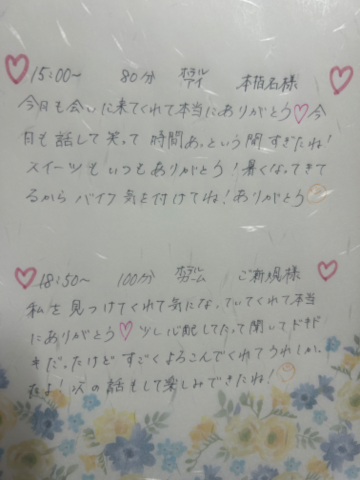 ♡15:00~ 80分 ホテルアイ 本指名様♡
今日も会いに来てくれて本当にありがとう♡今
日も話して笑って時間あっという間すぎたね!
スイーツもいつもありがとう!暑くなってきて
るからバイク気を付けてね!ありがとう
♡18:50~ 100分 ホテル ご新規様♡
私を見つけてくれて気になっていてくれて本当
にありがとう♡少し心配してたって聞いてドキド
キだったけどすごくよろこんでくれてうれしかっ
たよ!次の話もして楽しみできたね!